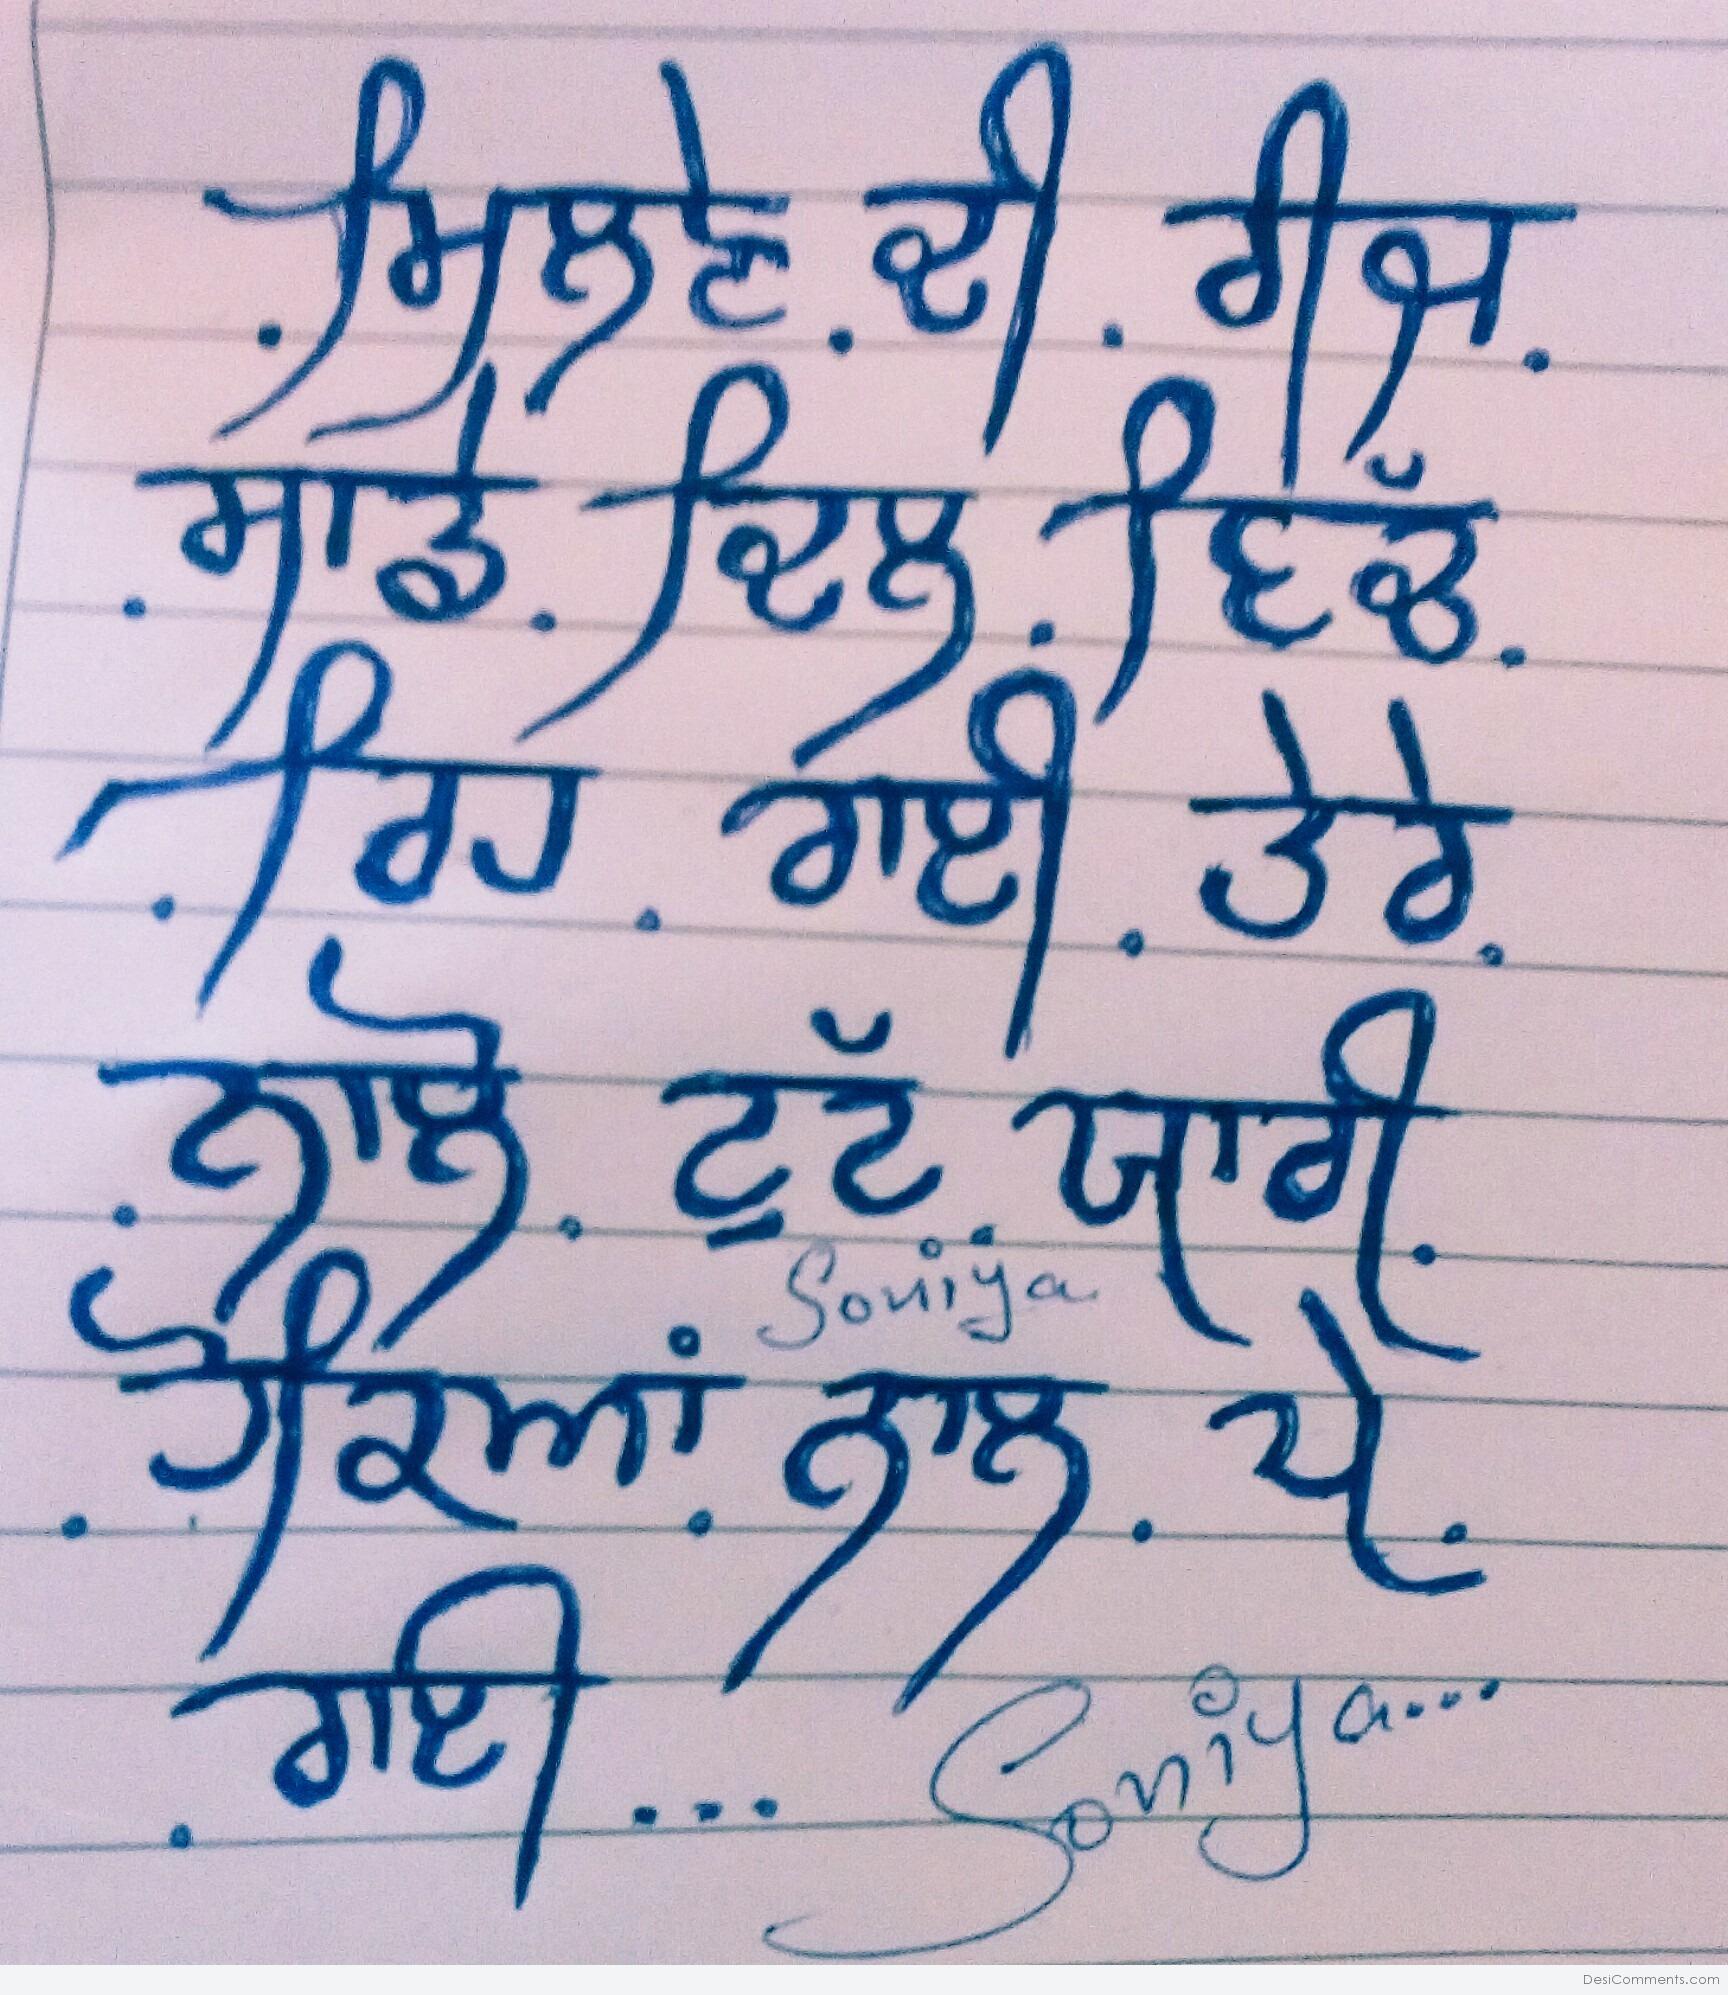 ਮਿਲਣੇ ਦੀ ਰੀਜ
ਸਾਡੇ ਦਿਲ ਵਿੱਚ
ਰਿਹ ਗਈ ਤੇਰੇ
ਨਾਲੋ ਟੁੱਟ ਯਾਰੀ
Soniya
ਹੋਰਿਆਂ ਨਾਲ ਪੇ
ਗਈ...
Soniya...
DesiComments.com